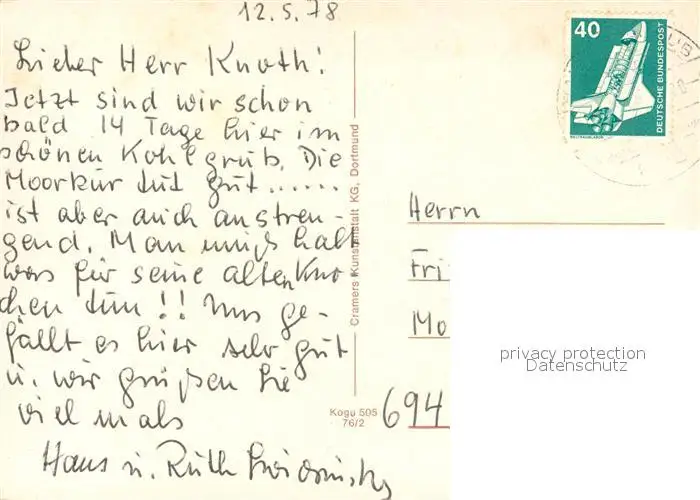 12.5.78
Lieber Herr Knoth!
Jetzt sind wir schon
bald 14 Tage hier im
schönen Kohlgrub. Die
Moorkur tut gut......
ist aber auch anstren-
gend. Man muß halt
was für seine alten Kno
chen tun!! Uns ge-
fällt es hier sehr gut
u. wir grüßen Sie
vielmals
Hans u. Ruth
Cramers Kunstanstalt KG, Dortmund
Kogu 595
76/2
40
DEUTSCHE BUNDESPOST
WELTRAUMLABOR
Herrn
Fri
Mo
694
privacy protection
Datenschutz